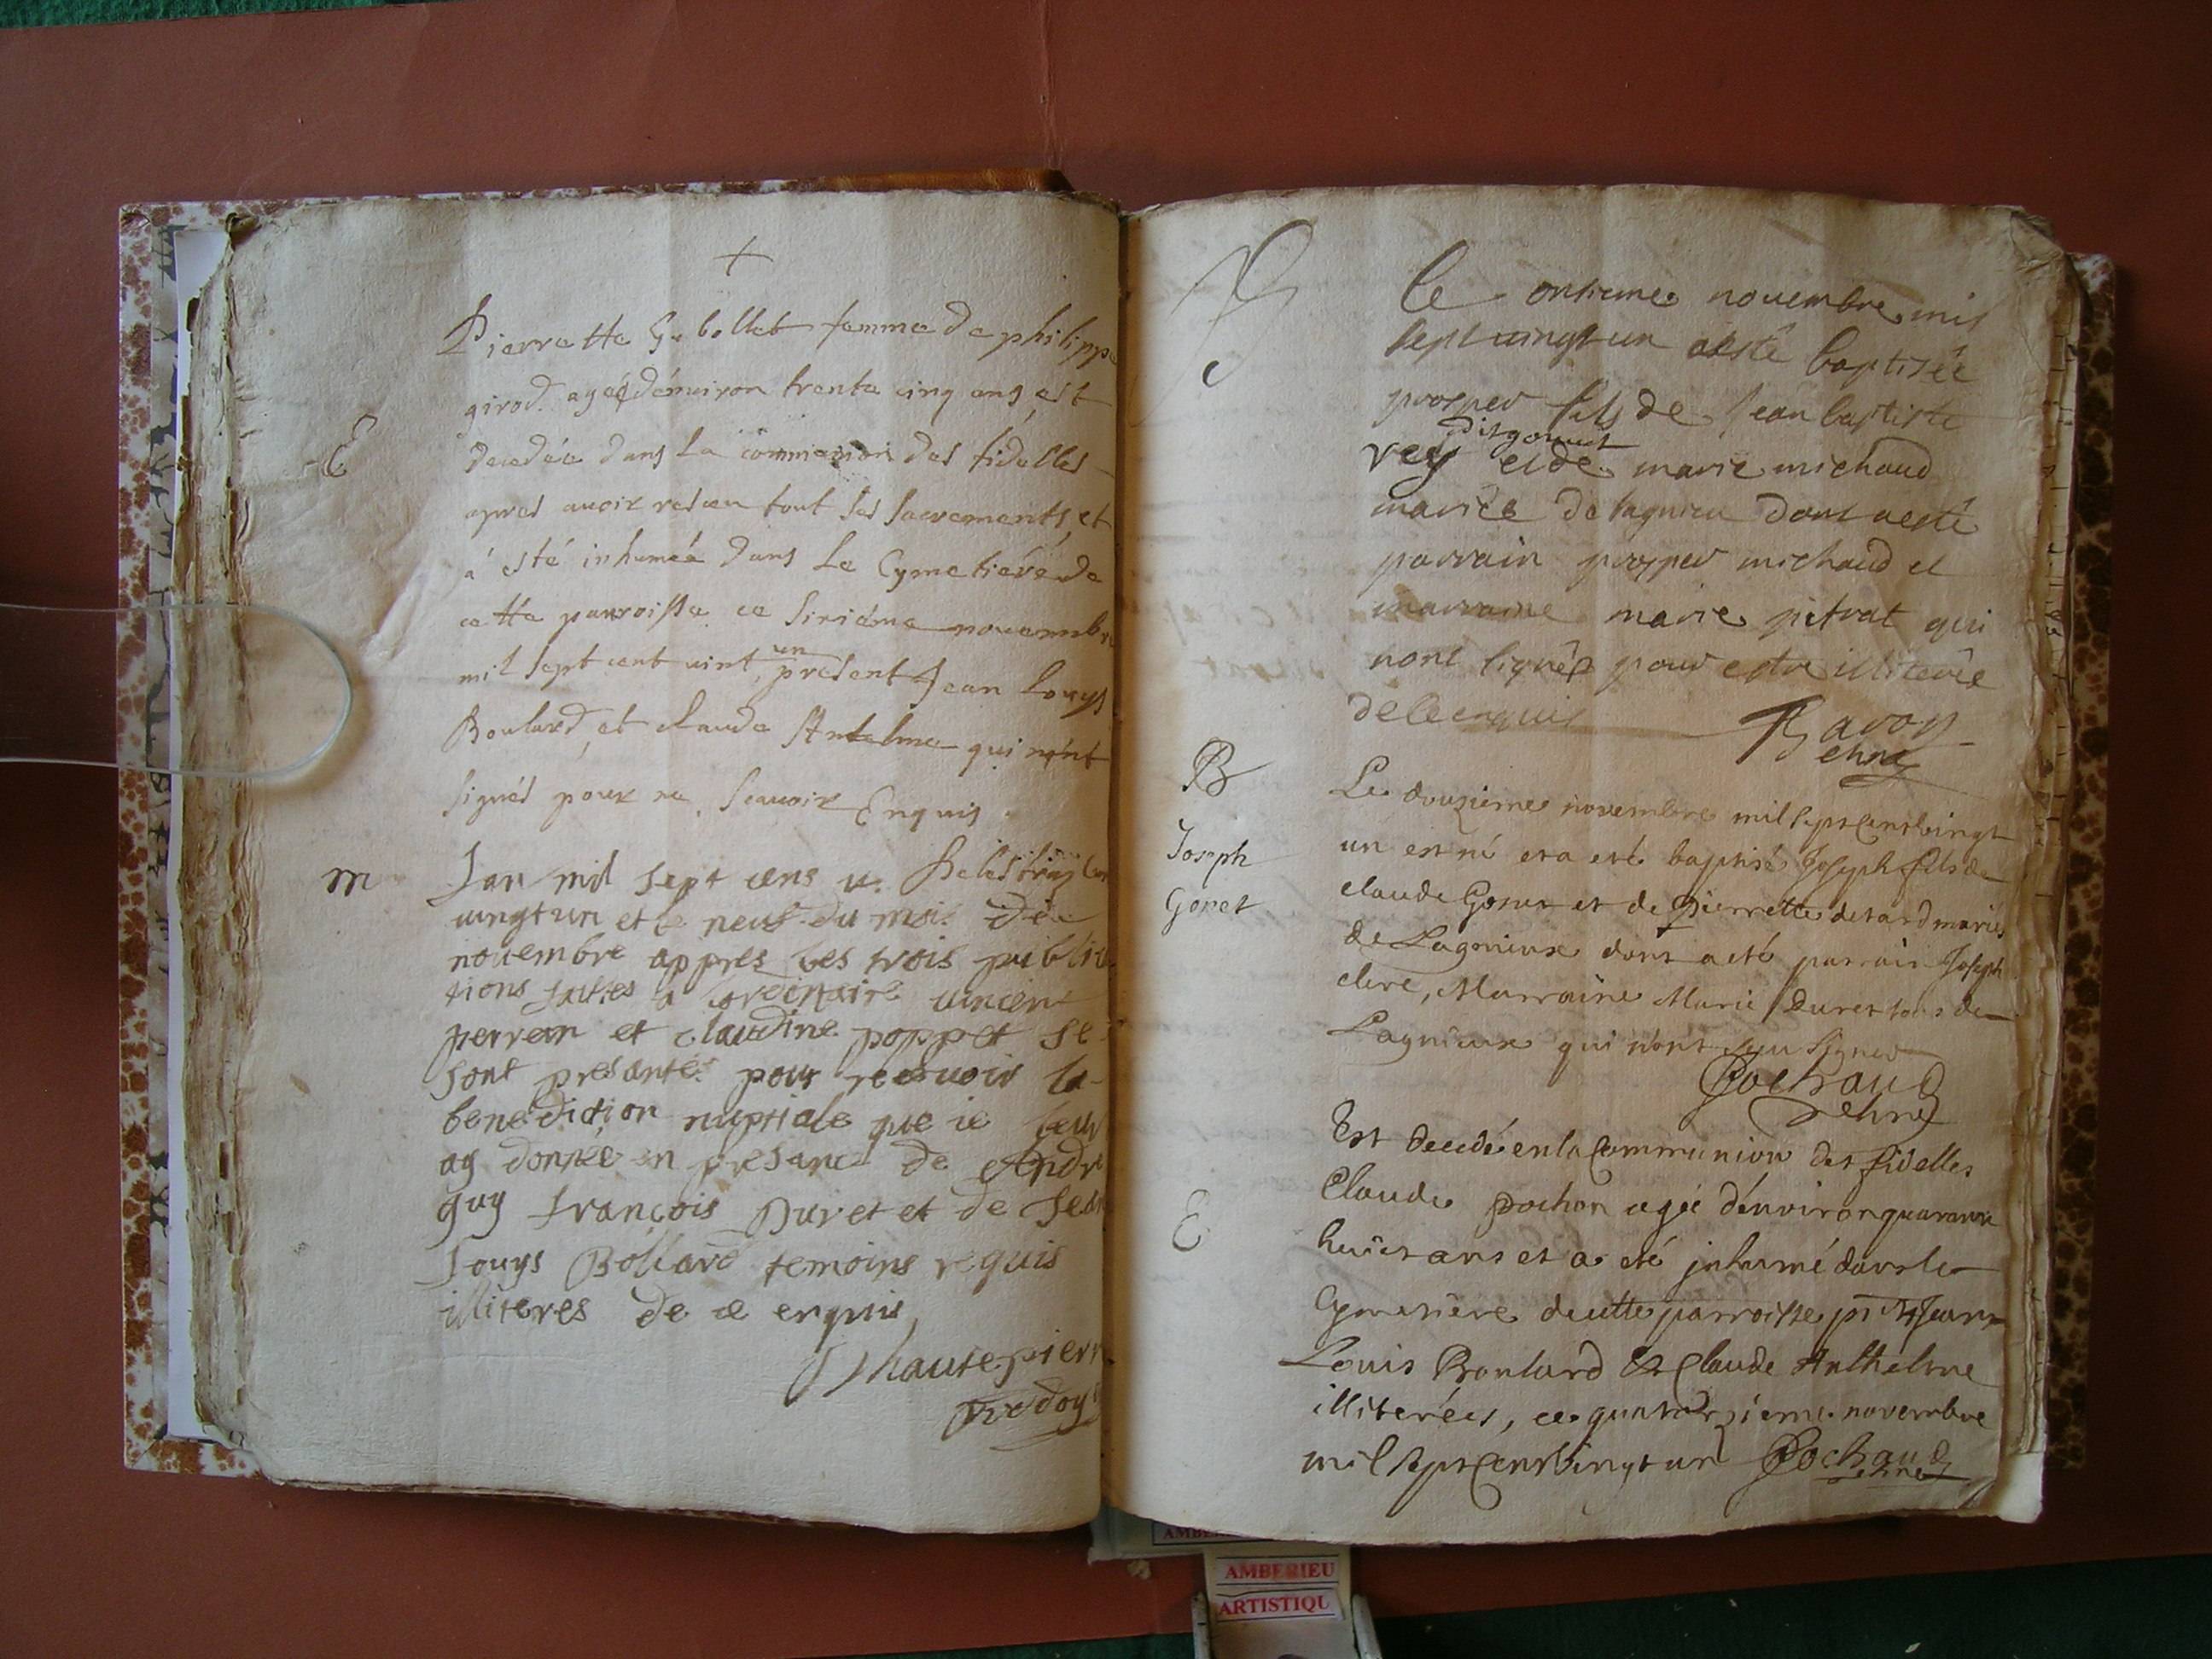 +
Pierrette Gubollet femme de philippe
girod agéé d'énuiron trente cinq ans est
E
decedée dans la communion des fidelles
apres auoir reseu tout ses sacrements, et
a esté inhumeé dans le Cymetiére de
cette parroisse ce sixiéme nouembre
mil sept cent uint un present Jean Louys
Boulard, et claude Antelme qui n'ont
signés pour ne scauoir Enquis.
m
Lan mil sept cens
uingt un et le neuf du mois de
nouembre appres les trois publica
tions faittes a lordinaire uincent
perrein et claudine poppet se
sont presantés pour receuoir la
benediction nuptiale que ie leur
ay donnée en presance de Andre
guy françois Duret et de Jean
Louys Bollard temoins requis
illiteres de ce enquis
hautepierre
B
le onsieme nouembre mil
sept uingt un a esté baptisée
prosper fils de Jean baptiste
rey dit gonnet et de marie michaud
mariés de lagnieu dont a esté
parrain prosper michaud et
marraine marie pitrat qui
nont signés pour estre illiterés
de ce enquis
Ravoy
B
Joseph
Gonet
Le douzieme novembre mil sept cent vingt
un est né et a eté baptisé Joseph fils de
claude Gonet et de Pierrette desard mariés
de Lagnieux dont a eté parrain Joseph
clere, Marraine Marie Duret tous de
Lagnieux qui n'ont sçu signer
Pochaud
E
Est decedé en la Communion des fidelles
Claude pochon agée d'énviron quarante
huict ans et a eté inhumé dans le
Cymetiere de cette parroisse pnts Jean
Louis Boulard & Claude Anthelme
illiterées, ce quatorzieme novembre
mil sept cent vingt un Pochaud
AMBERIEU
ARTISTIQU